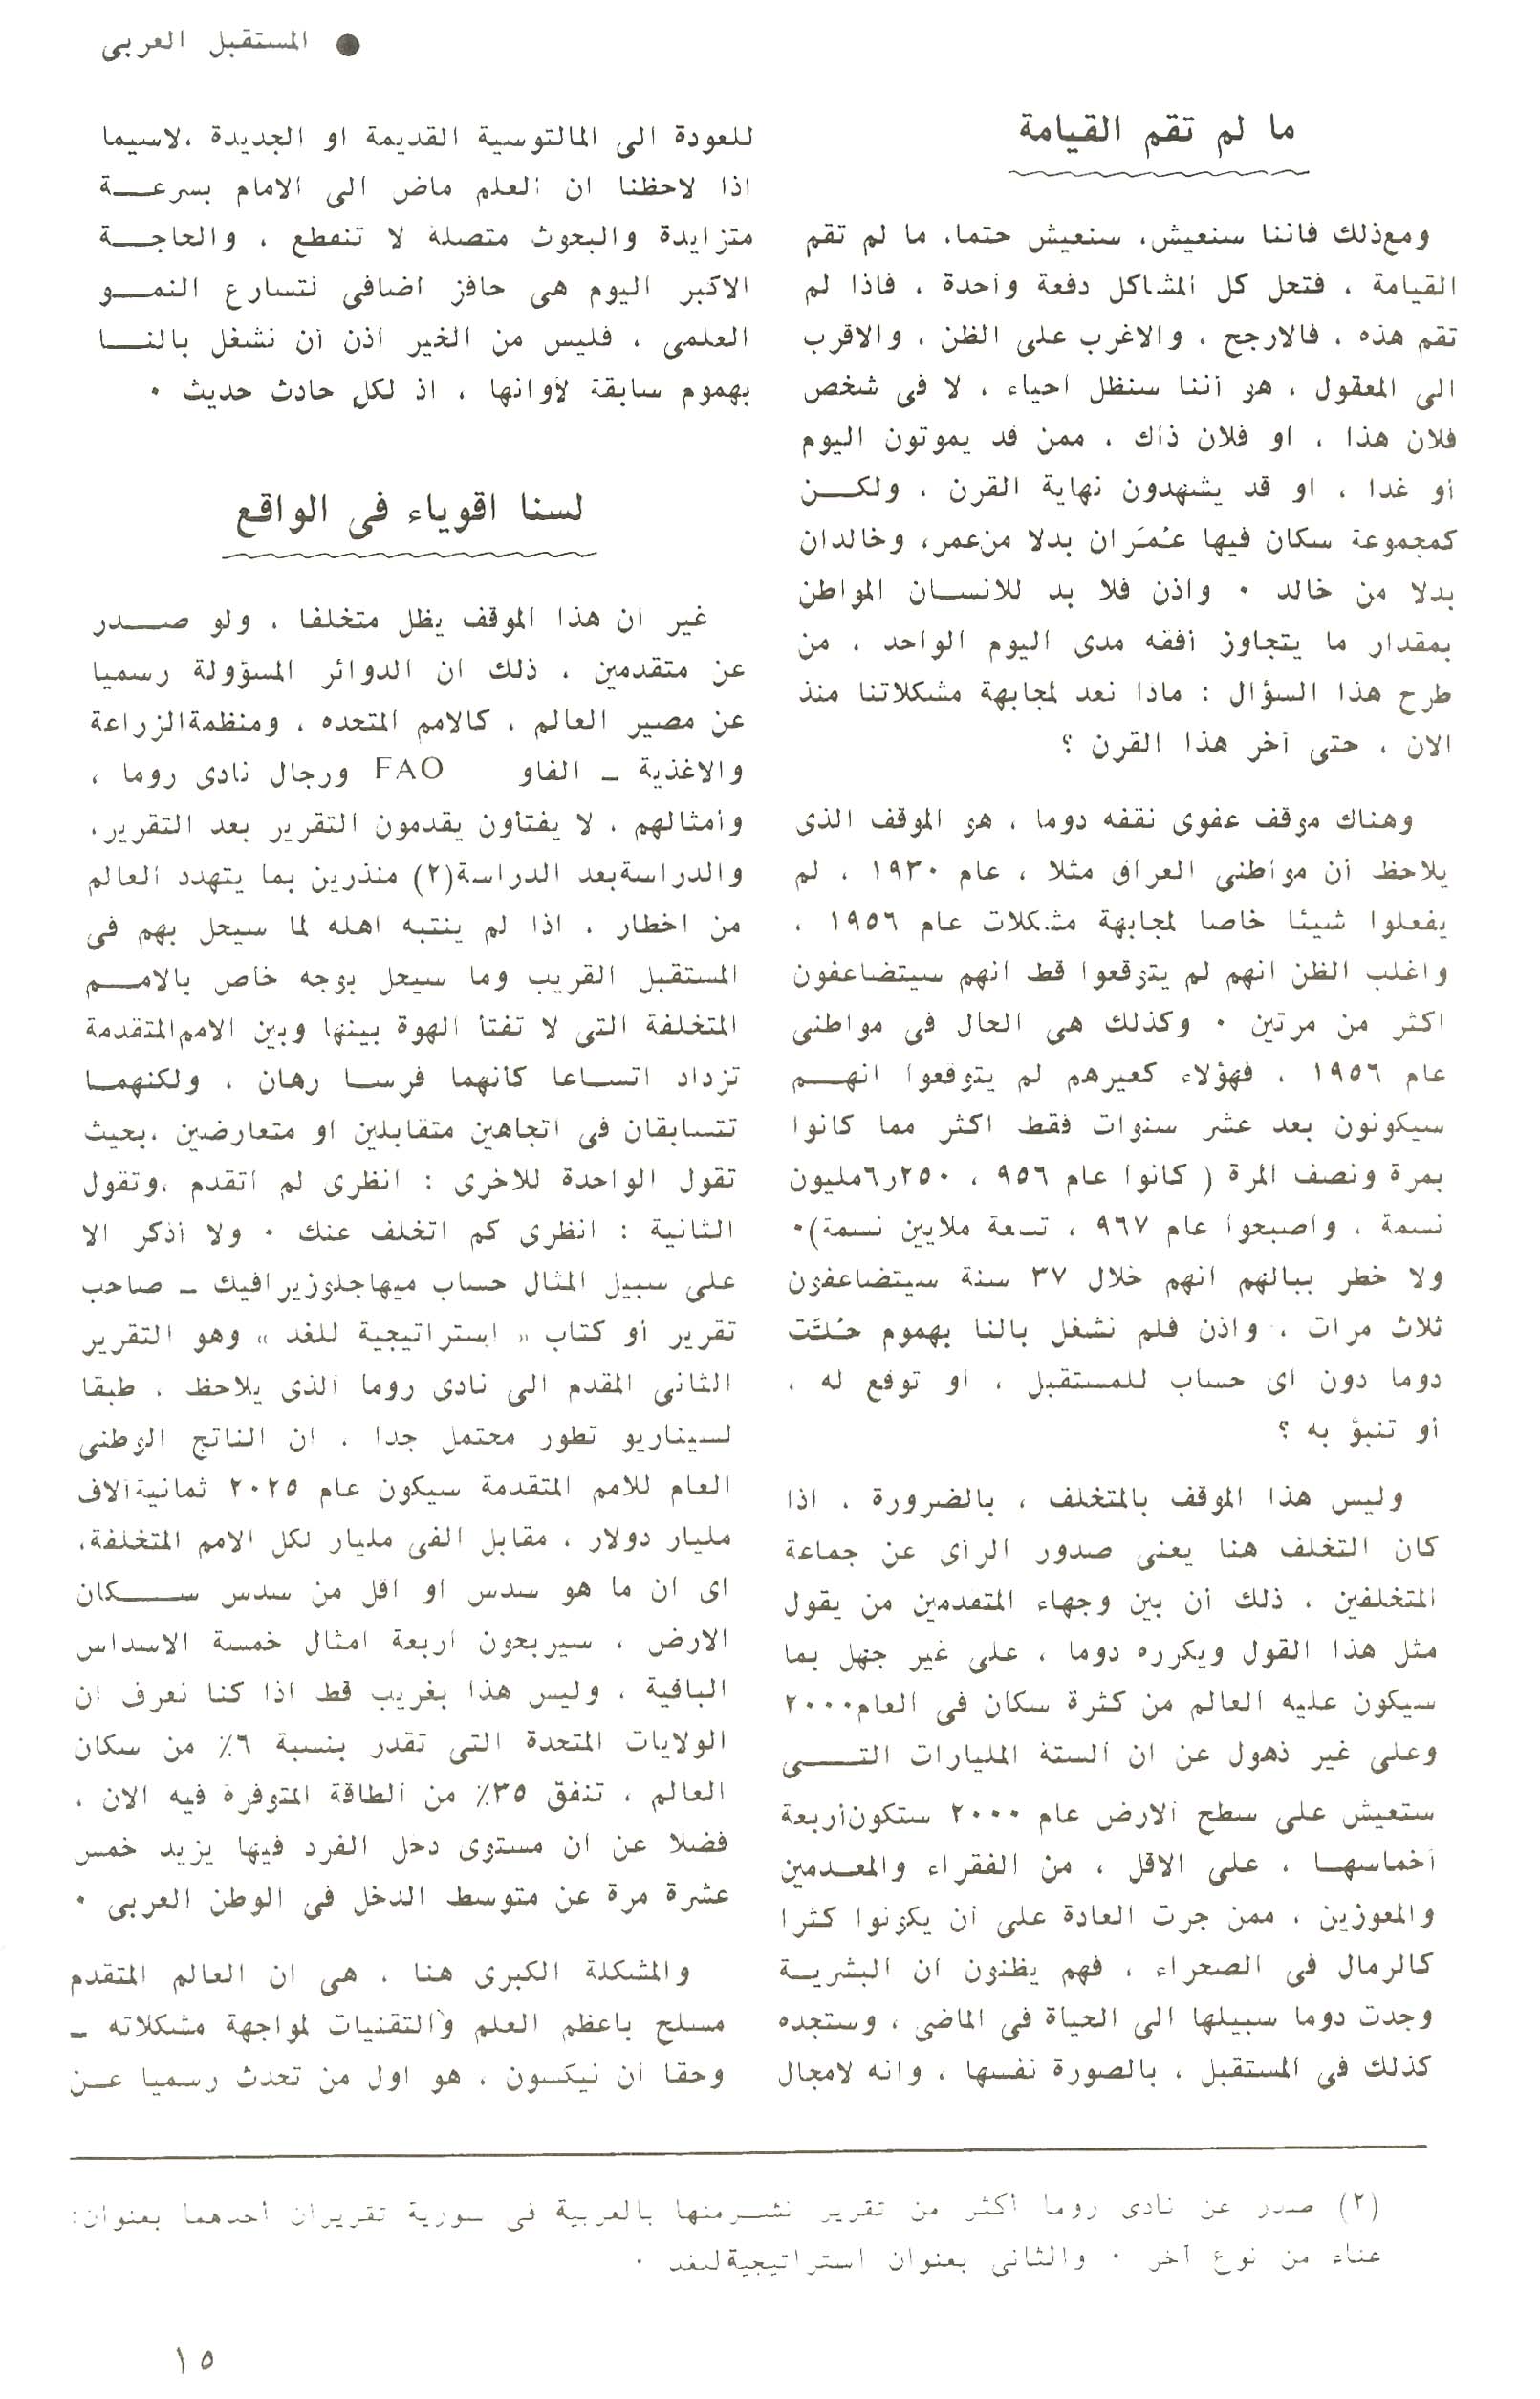 ● المستقبل العربى
ما لم تقم القيامة
ومع ذلك فاننا سنعيش، سنعيش حتما، ما لم تقم
القيامة ، فتحل كل المشاكل دفعة واحدة ، فاذا لم
تقم هذه ، فالارجح ، والاغرب على الظن ، والاقرب
الى المعقول ، هو أننا سنظل احياء ، لا فى شخص
فلان هذا ، او فلان ذاك ، ممن قد يموتون اليوم
أو غدا ، او قد يشهدون نهاية القرن ، ولكــن
كمجموعة سكان فيها عُمَران بدلا من عمر، وخالدان
بدلا من خالد ٠ واذن فلا بد للانســان المواطن
بمقدار ما يتجاوز أفقه مدى اليوم الواحد ، من
طرح هذا السؤال : ماذا نعد لمجابهة مشكلاتنا منذ
الان ، حتى آخر هذا القرن ؟
وهناك موقف عفوى نقفه دوما ، هو الموقف الذى
يلاحظ أن مواطنى العراق مثلا ، عام ١٩٣٠ ، لم
يفعلوا شيئا خاصا لمجابهة مشكلات عام ١٩٥٦ ،
واغلب الظن انهم لم يتوقعوا قط انهم سيتضاعفون
اكثر من مرتين ٠ وكذلك هى الحال فى مواطنى
عام ١٩٥٦ ، فهؤلاء كغيرهم لم يتوقعوا انهــم
سيكونون بعد عشر سنوات فقط اكثر مما كانوا
بمرة ونصف المرة ( كانوا عام ٩٥٦ ، ٢٥٠ر٦مليون
نسمة ، واصبحوا عام ٩٦٧ ، تسعة ملايين نسمة)٠
ولا خطر ببالهم انهم خلال ٣٧ سنة سيتضاعفون
ثلاث مرات ، واذن فلم نشغل بالنا بهموم حُلَّت
دوما دون اى حساب للمستقبل ، او توقع له ،
أو تنبؤ به ؟
وليس هذا الموقف بالمتخلف ، بالضرورة ، اذا
كان التخلف هنا يعنى صدور الرأى عن جماعة
المتخلفين ، ذلك أن بين وجهاء المتقدمين من يقول
مثل هذا القول ويكرره دوما ، على غير جهل بما
سيكون عليه العالم من كثرة سكان فى العام ٢٠٠٠
وعلى غير ذهول عن ان الستة المليارات التــــى
ستعيش على سطح الارض عام ٢٠٠٠ ستكون أربعة
أخماسهــا ، على الاقل ، من الفقراء والمعــدمين
والمعوزين ، ممن جرت العادة على أن يكونوا كثرا
كالرمال فى الصحراء ، فهم يظنون ان البشريــة
وجدت دوما سبيلها الى الحياة فى الماضى ، وستجده
كذلك فى المستقبل ، بالصورة نفسها ، وانه لامجال
للعودة الى المالتوسية القديمة او الجديدة ،لاسيما
اذا لاحظنا ان العلم ماض الى الامام بسرعــة
متزايدة والبحوث متصلة لا تنقطع ، والحاجــة
الاكبر اليوم هى حافز اضافى لتسارع النمــو
العلمى ، فليس من الخير اذن أن نشغل بالنــا
بهموم سابقة لأوانها ، اذ لكل حادث حديث ٠
لسنا اقوياء فى الواقع
غير ان هذا الموقف يظل متخلفا ، ولو صــدر
عن متقدمين ، ذلك ان الدوائر المسؤولة رسميا
عن مصير العالم ، كالامم المتحده ، ومنظمة الزراعة
والاغذية ـ الفاو FAO ورجال نادى روما ،
وأمثالهم ، لا يفتأون يقدمون التقرير بعد التقرير،
والدراسة بعد الدراسة(٢) منذرين بما يتهدد العالم
من اخطار ، اذا لم ينتبه اهله لما سيحل بهم فى
المستقبل القريب وما سيحل بوجه خاص بالامــم
المتخلفة التى لا تفتأ الهوة بينها وبين الامم المتقدمة
تزداد اتساعا كأنهما فرسا رهان ، ولكنهمــا
تتسابقان فى اتجاهين متقابلين او متعارضين ،بحيث
تقول الواحدة للاخرى : انظرى لم اتقدم ،وتقول
الثانية : انظرى كم اتخلف عنك ٠ ولا أذكر الا
على سبيل المثال حساب ميهاجلوزيرافيك ـ صاحب
تقرير أو كتاب « استراتيجية للغد » وهو التقرير
الثانى المقدم الى نادى روما الذى يلاحظ ، طبقا
لسيناريو تطور محتمل جدا ، ان الناتج الوطنى
العام للامم المتقدمة سيكون عام ٢٠٢٥ ثمانية آلاف
مليار دولار ، مقابل الفى مليار لكل الامم المتخلفة،
اى ان ما هو سدس او اقل من سدس ســكان
الارض ، سيربحون اربعة امثال خمسة الاسداس
الباقية ، وليس هذا بغريب قط اذا كنا نعرف ان
الولايات المتحدة التى تقدر بنسبة ٦٪ من سكان
العالم ، تنفق ٣٥٪ من الطاقة المتوفرة فيه الان ،
فضلا عن ان مستوى دخل الفرد فيها يزيد خمس
عشرة مرة عن متوسط الدخل فى الوطن العربى ٠
والمشكلة الكبرى هنا ، هى ان العالم المتقدم
مسلح باعظم العلم والتقنيات لمواجهة مشكلاته ـ
وحقا ان نيكسون ، هو اول من تحدث رسميا عــن
(٢) صدر عن نادى روما أكثر من تقرير نشر منها بالعربية فى سورية تقريران أحدهما بعنوان:
عناء من نوع آخر ٠ والثانى بعنوان استراتيجية للغد ٠
١٥